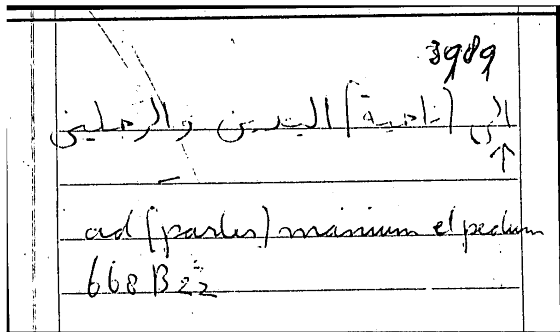 3989
الى (ناحية) اليدين والرجلين
ad (partes) manuum et pedum
668 B 22